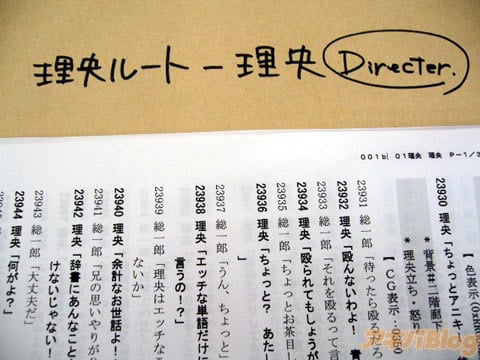 理央ルート－理央 Directer.
001b| 01理央 理央 P-1/3
【 色表示：(0x0
23930 理央「ちょっとアニキ
＊背景＃二階廊下
＊理央立ち・怒り
【 CG表示：036
23931 総一郎「待ったら殴るだろ
23932 理央「殴んないわよ！
23933 総一郎「それを殴るって言
23934 理央「殴られてもしょうが
23935 総一郎「ちょっとお茶目
23936 理央「ちょっと？ あた
23937 総一郎「うん、ちょっと」
23938 理央「エッチな単語だけに
言うの！？」
23939 総一郎「理央はエッチなこ
ないか」
23940 理央「余計なお世話よ！
23941 総一郎「兄の思いやりが
23942 理央「辞書にあんなこと
けないじゃない！
23943 総一郎「大丈夫だ」
23944 理央「何がよ？」
アキバBlog